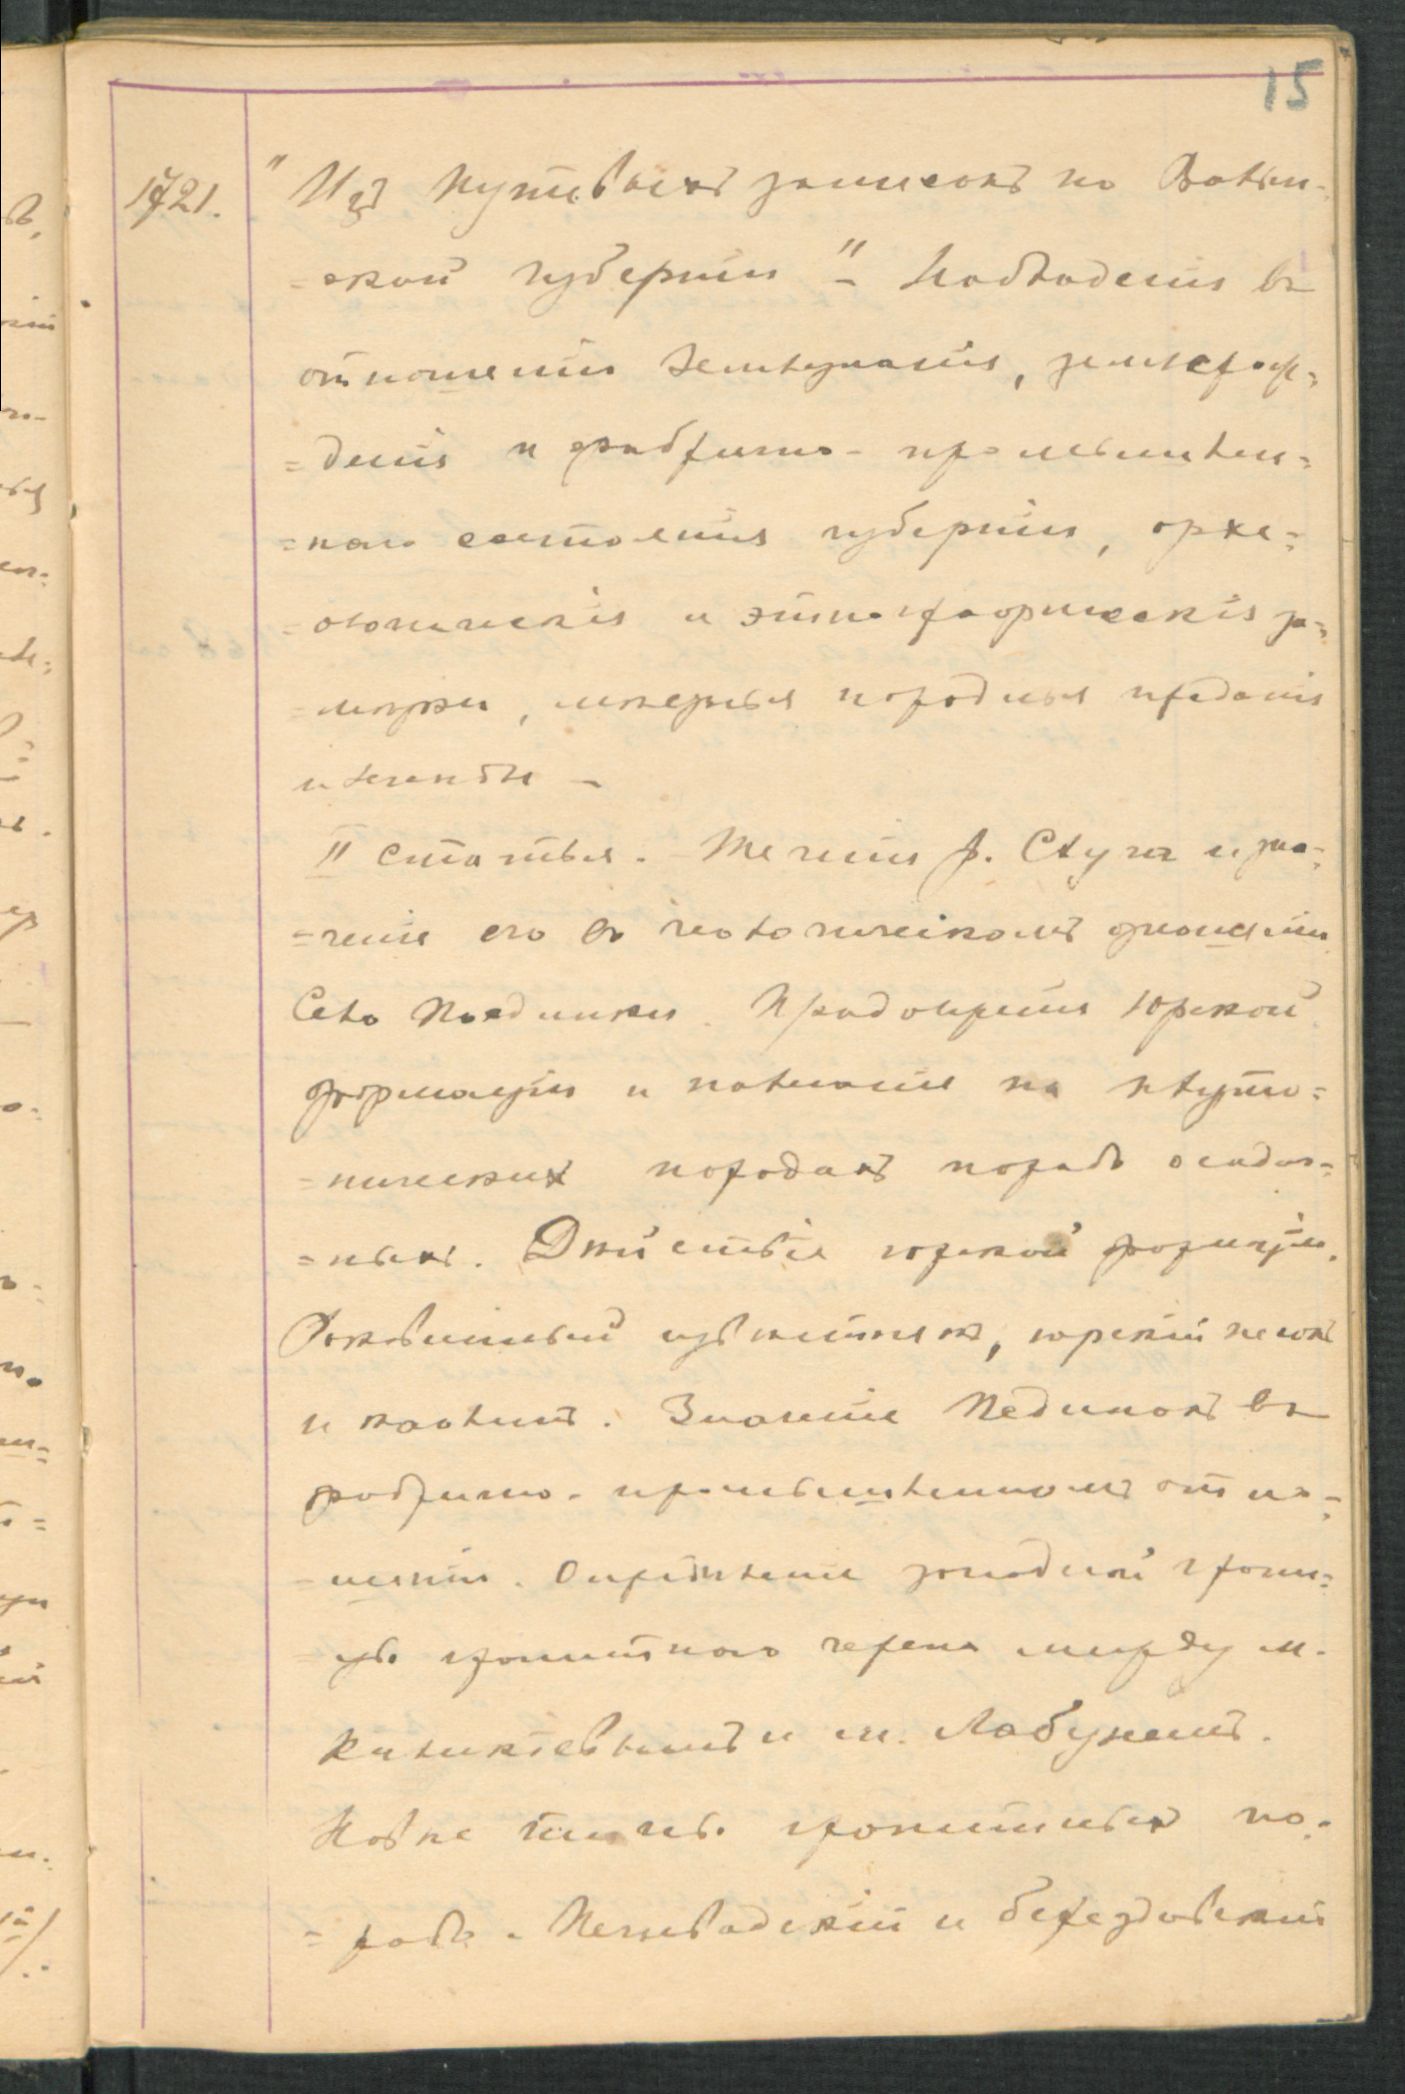 15
1721. "Изъ путевыхъ записокъ по Волын-
=ской губерніи" – Наблюденія въ
отношеніи землезнанія, землерож=
=денія и фабрично-промышлен=
=наго состоянія губерніи, архе=
=ологическія и этнографическія за=
=мѣтки, мѣстныя народныя преданія
и легенды –
II статья. – Теченіе р. Случи и зна=
=ченіе его въ геологическомъ отношеніи
Село Пединки. Продолженіе Юрской
формаціи и налеганіе на плуто=
=ническихъ породахъ породъ осадоч=
=ныхъ. Дѣйствіе юрской формаціи.
Раковинный известнякъ, юрскій песокъ
и каолинъ. Значеніе Пединокъ въ
фабрично-промышленномъ отно=
=шеніи. Опредѣленіе западной грани=
цы гранитнаго кряжа между м.
и м. Лабунемъ.
Новые типы гранитныхъ по=
=родъ. и Берездовскій